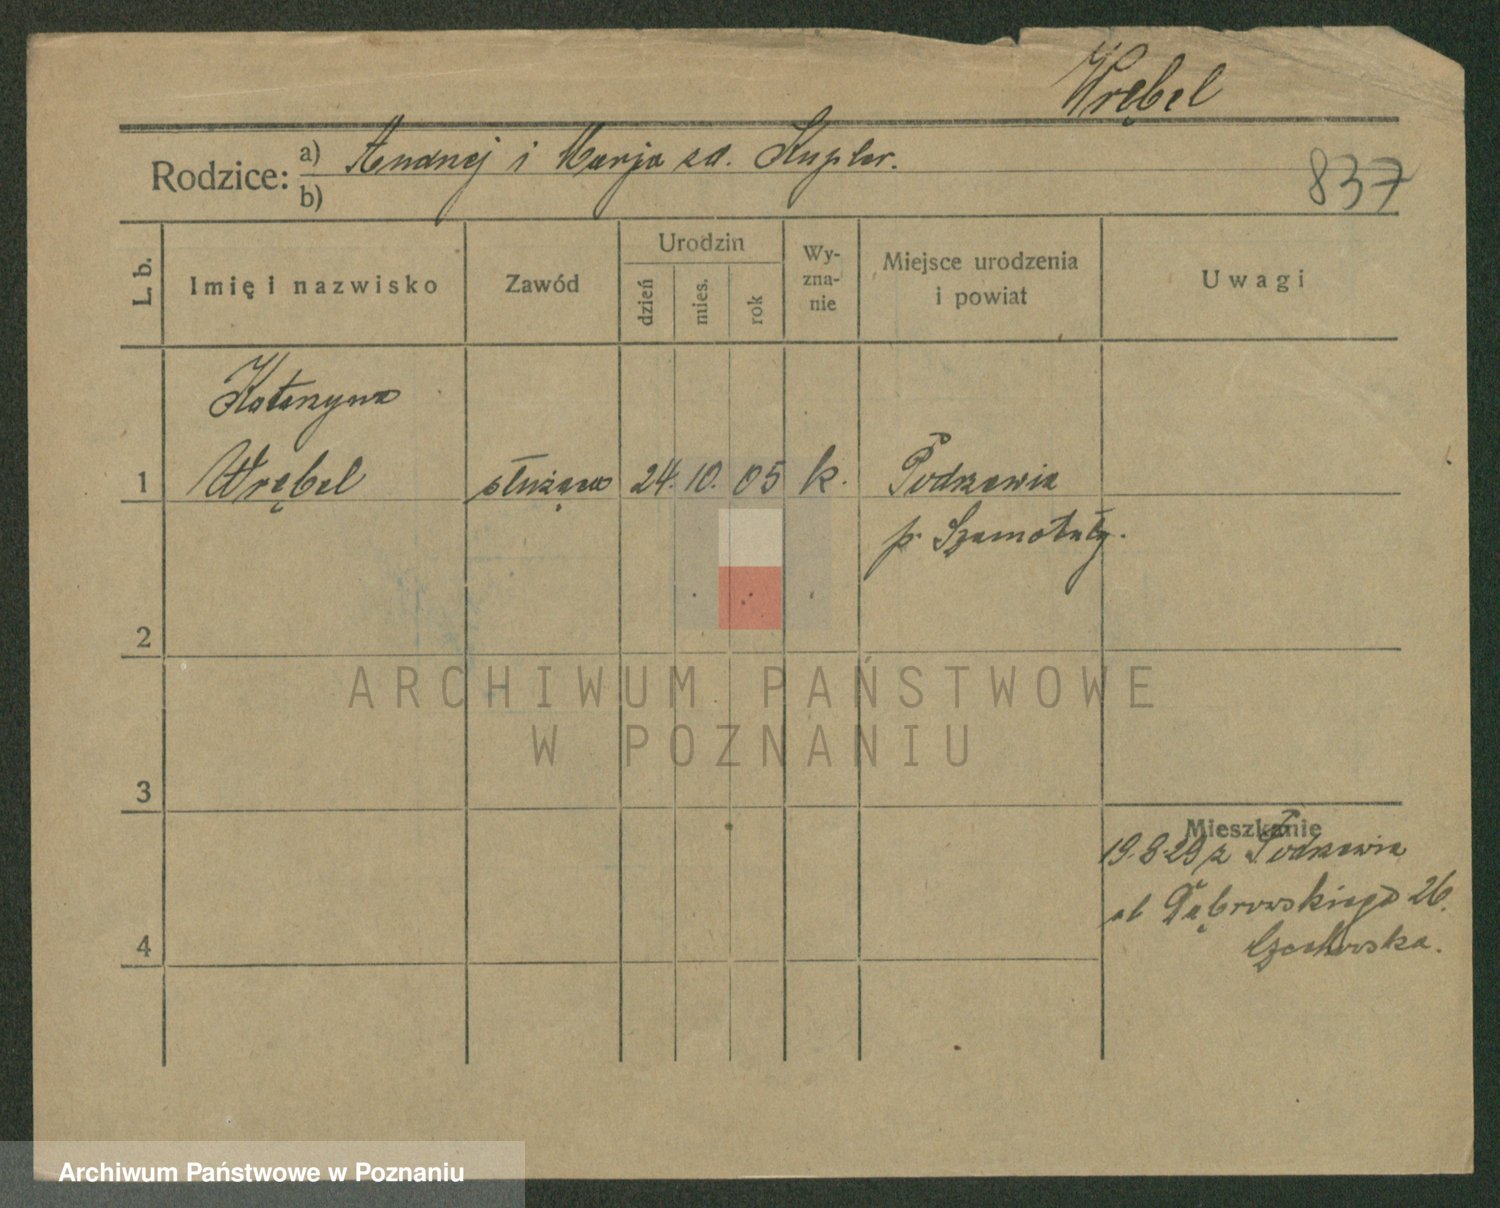 Wrębel
Rodzice: a) Andrzej i Marja zd. Kupler.
b)
837
L. b.
Imię i nazwisko
Zawód
Urodzin
dzień
mies.
rok
Wy-
zna-
nie
Miejsce urodzenia
i powiat
Uwagi
Katarzyna
1 Wrębel służąca 24. 10. 05 k. Podrzewie
p. Szamotuły.
2
3
4
Mieszkanie
19.8.29 z Podrzewie
Dąbrowskiego 26.
ARCHIWUM PAŃSTWOWE
W POZNANIU
Archiwum Państwowe w Poznaniu